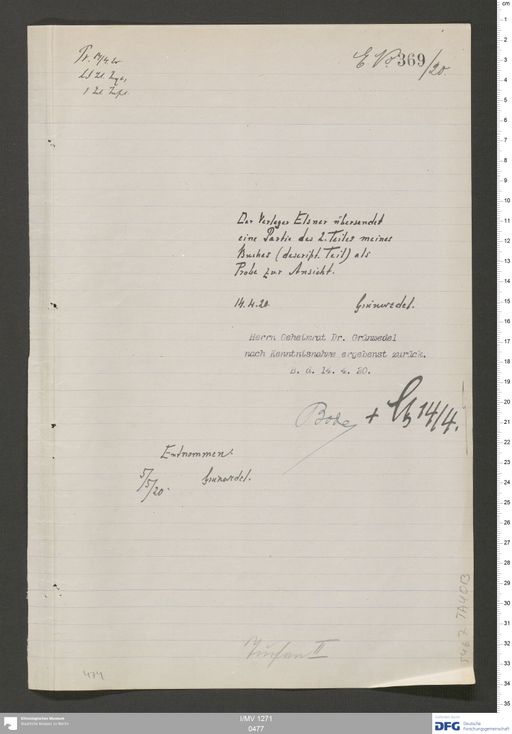 E No 369/20.
Der Verleger Elsner übersendet
eine Partie des 2. Teiles meines
Buches (descript. Teil) als
Probe zur Ansicht.
14.4.20. Grünwedel.
Herrn Geheimrat Dr. Grünwedel
nach Kenntnisnahme ergebenst zurück.
B. d. 14. 4. 20.
Bode + 14/4.
Entnommen:
5/5/20. Grünwedel.
Turfan II
I/MV 1271
0477
Ethnologisches Museum
Staatliche Museen zu Berlin
DFG Deutsche
Forschungsgemeinschaft